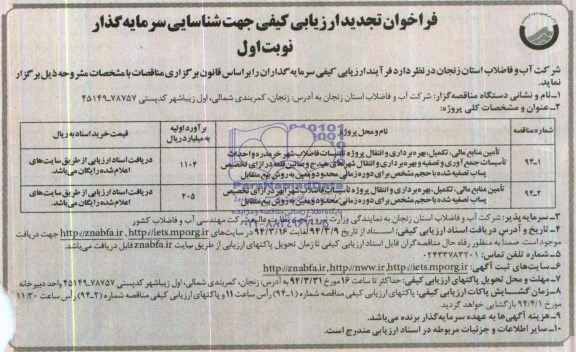 فراخوان تجدید ارزیابی کیفی جهت شناسایی سرمایه گذار
نوبت اول
شرکت آب و فاضلاب استان زنجان در نظر دارد فرآیند ارزیابی کیفی سرمایه گذاران را براساس قانون برگزاری مناقصات با مشخصات مشروحه ذیل برگزار
نماید.
۱-نام و نشانی دستگاه مناقصه گزار: شرکت آب و فاضلاب استان زنجان به آدرس: زنجان، کمربندی شمالی، اول زیباشهر کدپستی ۷۸۷۵۷-۴۵۱۴۹
۲-عنوان و مشخصات کلی پروژه:
شماره مناقصه
نام و محل پروژه
برآورد اولیه به میلیارد ریال
قیمت خرید اسناد به ریال
۹۴-۱
تأمین منابع مالی، تکمیل، بهره برداری و انتقال پروژه تأسیسات فاضلاب شهر خرمدره و احداث
تأسیسات جمع آوری و تصفیه و بهره برداری و انتقال شهرهای هیدج و صائین قلعه در ازای تخصیص
پساب تصفیه شده با حجم مشخص برای دوره زمانی محدود و معین به روش بیع متقابل
۱۱۰۴
دریافت اسناد ارزیابی از طریق سایت های
اعلام شده رایگان می باشد.
۹۴-۲
تأمین منابع مالی، تکمیل، بهره برداری و انتقال پروژه تأسیسات فاضلاب شهر ابهر در ازای تخصیص
پساب تصفیه شده با حجم مشخص برای دوره زمانی محدود و معین به روش بیع متقابل
۲۰۵
دریافت اسناد ارزیابی از طریق سایت های
اعلام شده رایگان می باشد.
۳-سرمایه پذیر: شرکت آب و فاضلاب استان زنجان به نمایندگی وزارت نیرو تحت نظارت عالیه شرکت مهندسی آب و فاضلاب کشور
۴-تاریخ و آدرس دریافت اسناد ارزیابی کیفی: اسناد از تاریخ ۹۴/۳/۹ لغایت ۹۴/۳/۱۶ در سایت های http://iets.mporg.ir، http://znabfa.ir جهت دریافت
موجود است. ضمنا به منظور رفاه حال مناقصه گران فایل اسناد ارزیابی کیفی تا زمان تحویل پاکتهای ارزیابی از طریق سایت znabfa.ir قابل دریافت می باشد.
۵-شماره تلفن تماس: ۰۲۴۳۳۷۸۳۲۰۱
۶-سایت های ثبت آگهی: http://znabfa.ir, http://nww.ir, http://iets.mporg.ir
۷-مهلت و محل تحویل پاکتهای ارزیابی کیفی: حداکثر تا ساعت ۱۶ مورخ ۹۴/۳/۳۱ به آدرس: زنجان، کمربندی شمالی، اول زیباشهر کدپستی ۷۸۷۵۷-۴۵۱۴۹ واحد دبیرخانه
۸-زمان گشایش پاکات ارزیابی کیفی: پاکتهای ارزیابی کیفی مناقصه شماره (۱-۹۴) رأس ساعت ۱۱ و پاکتهای ارزیابی کیفی مناقصه شماره (۲-۹۴) رأس ساعت ۱۱:۳۰
مورخ ۹۴/۴/۱ بازگشایی خواهد گردید.
۹-هزینه آگهی ها به عهده سرمایه گذار برنده می باشد.
۱۰-سایر اطلاعات و جزئیات مربوطه در اسناد ارزیابی مندرج است.